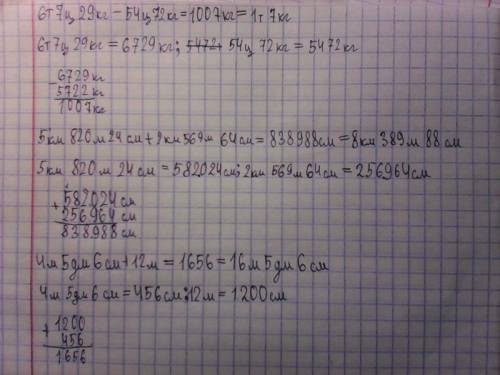 6т 7ц 29кг − 54ц 72кг = 1007кг = 1т 7кг
6т 7ц 29кг = 6729кг; 5472 54ц 72кг = 5472кг
− 6729кг
5722кг
1007кг
5км 820м 24см + 2км 569м 64см = 838988см = 8км 389м 88см
5км 820м 24см = 582024см; 2км 569м 64см = 256964см
+ 582024см
256964см
838988см
4м 5дм 6см + 12м = 1656 = 16м 5дм 6см
4м 5дм 6см = 456см; 12м = 1200см
+ 1200
456
1656